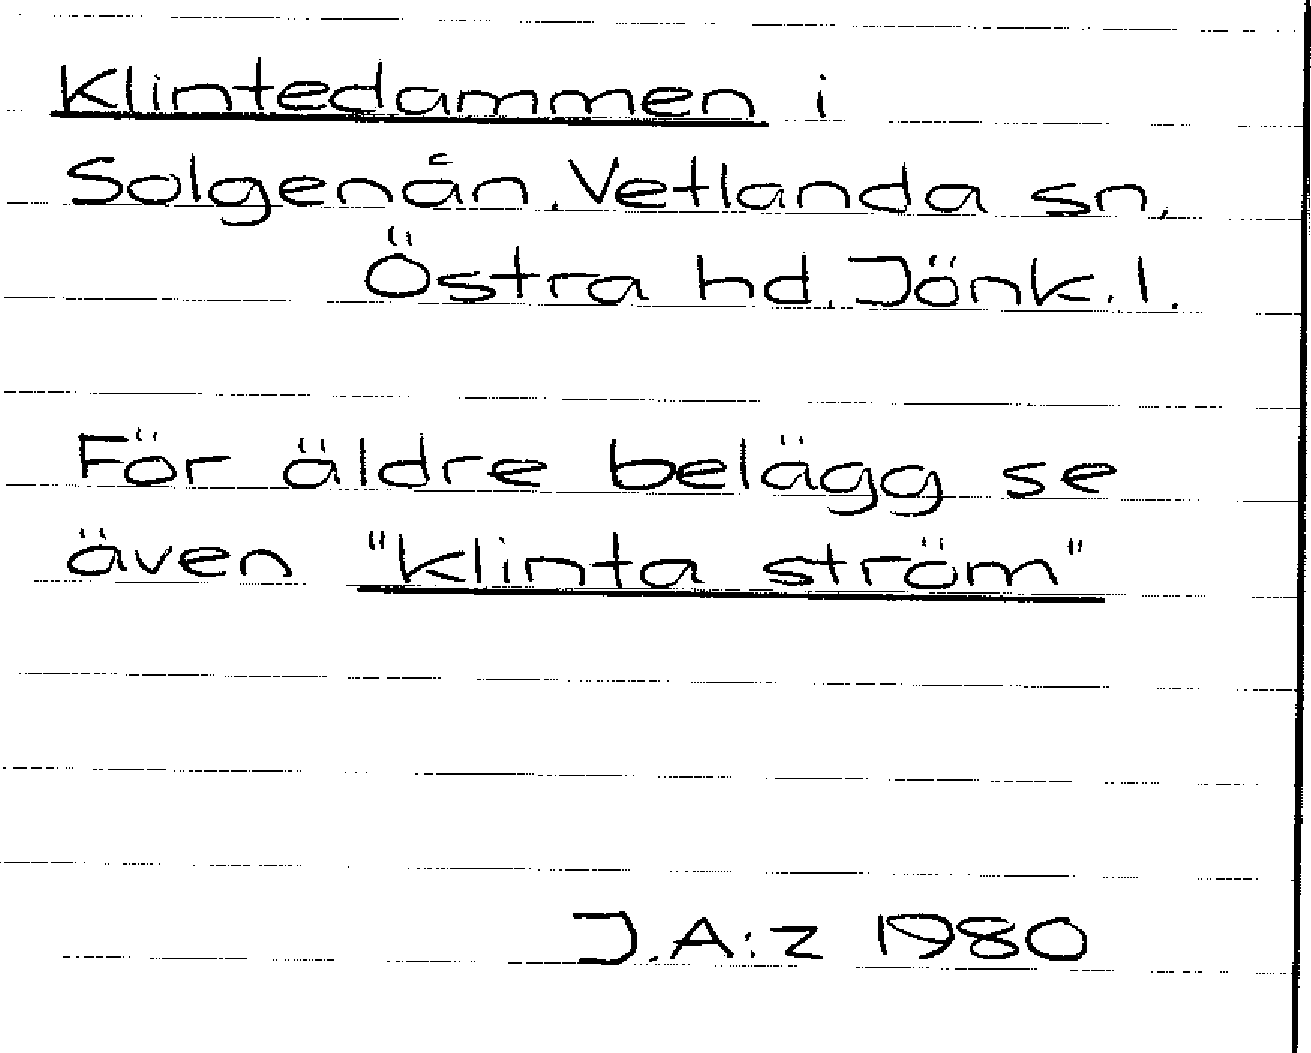 Klintedammen i
Solgenån. Vetlanda sn,
Östra hd. Jönk. l.
För äldre belägg se
även "klinta ström"
J.A:z 1980